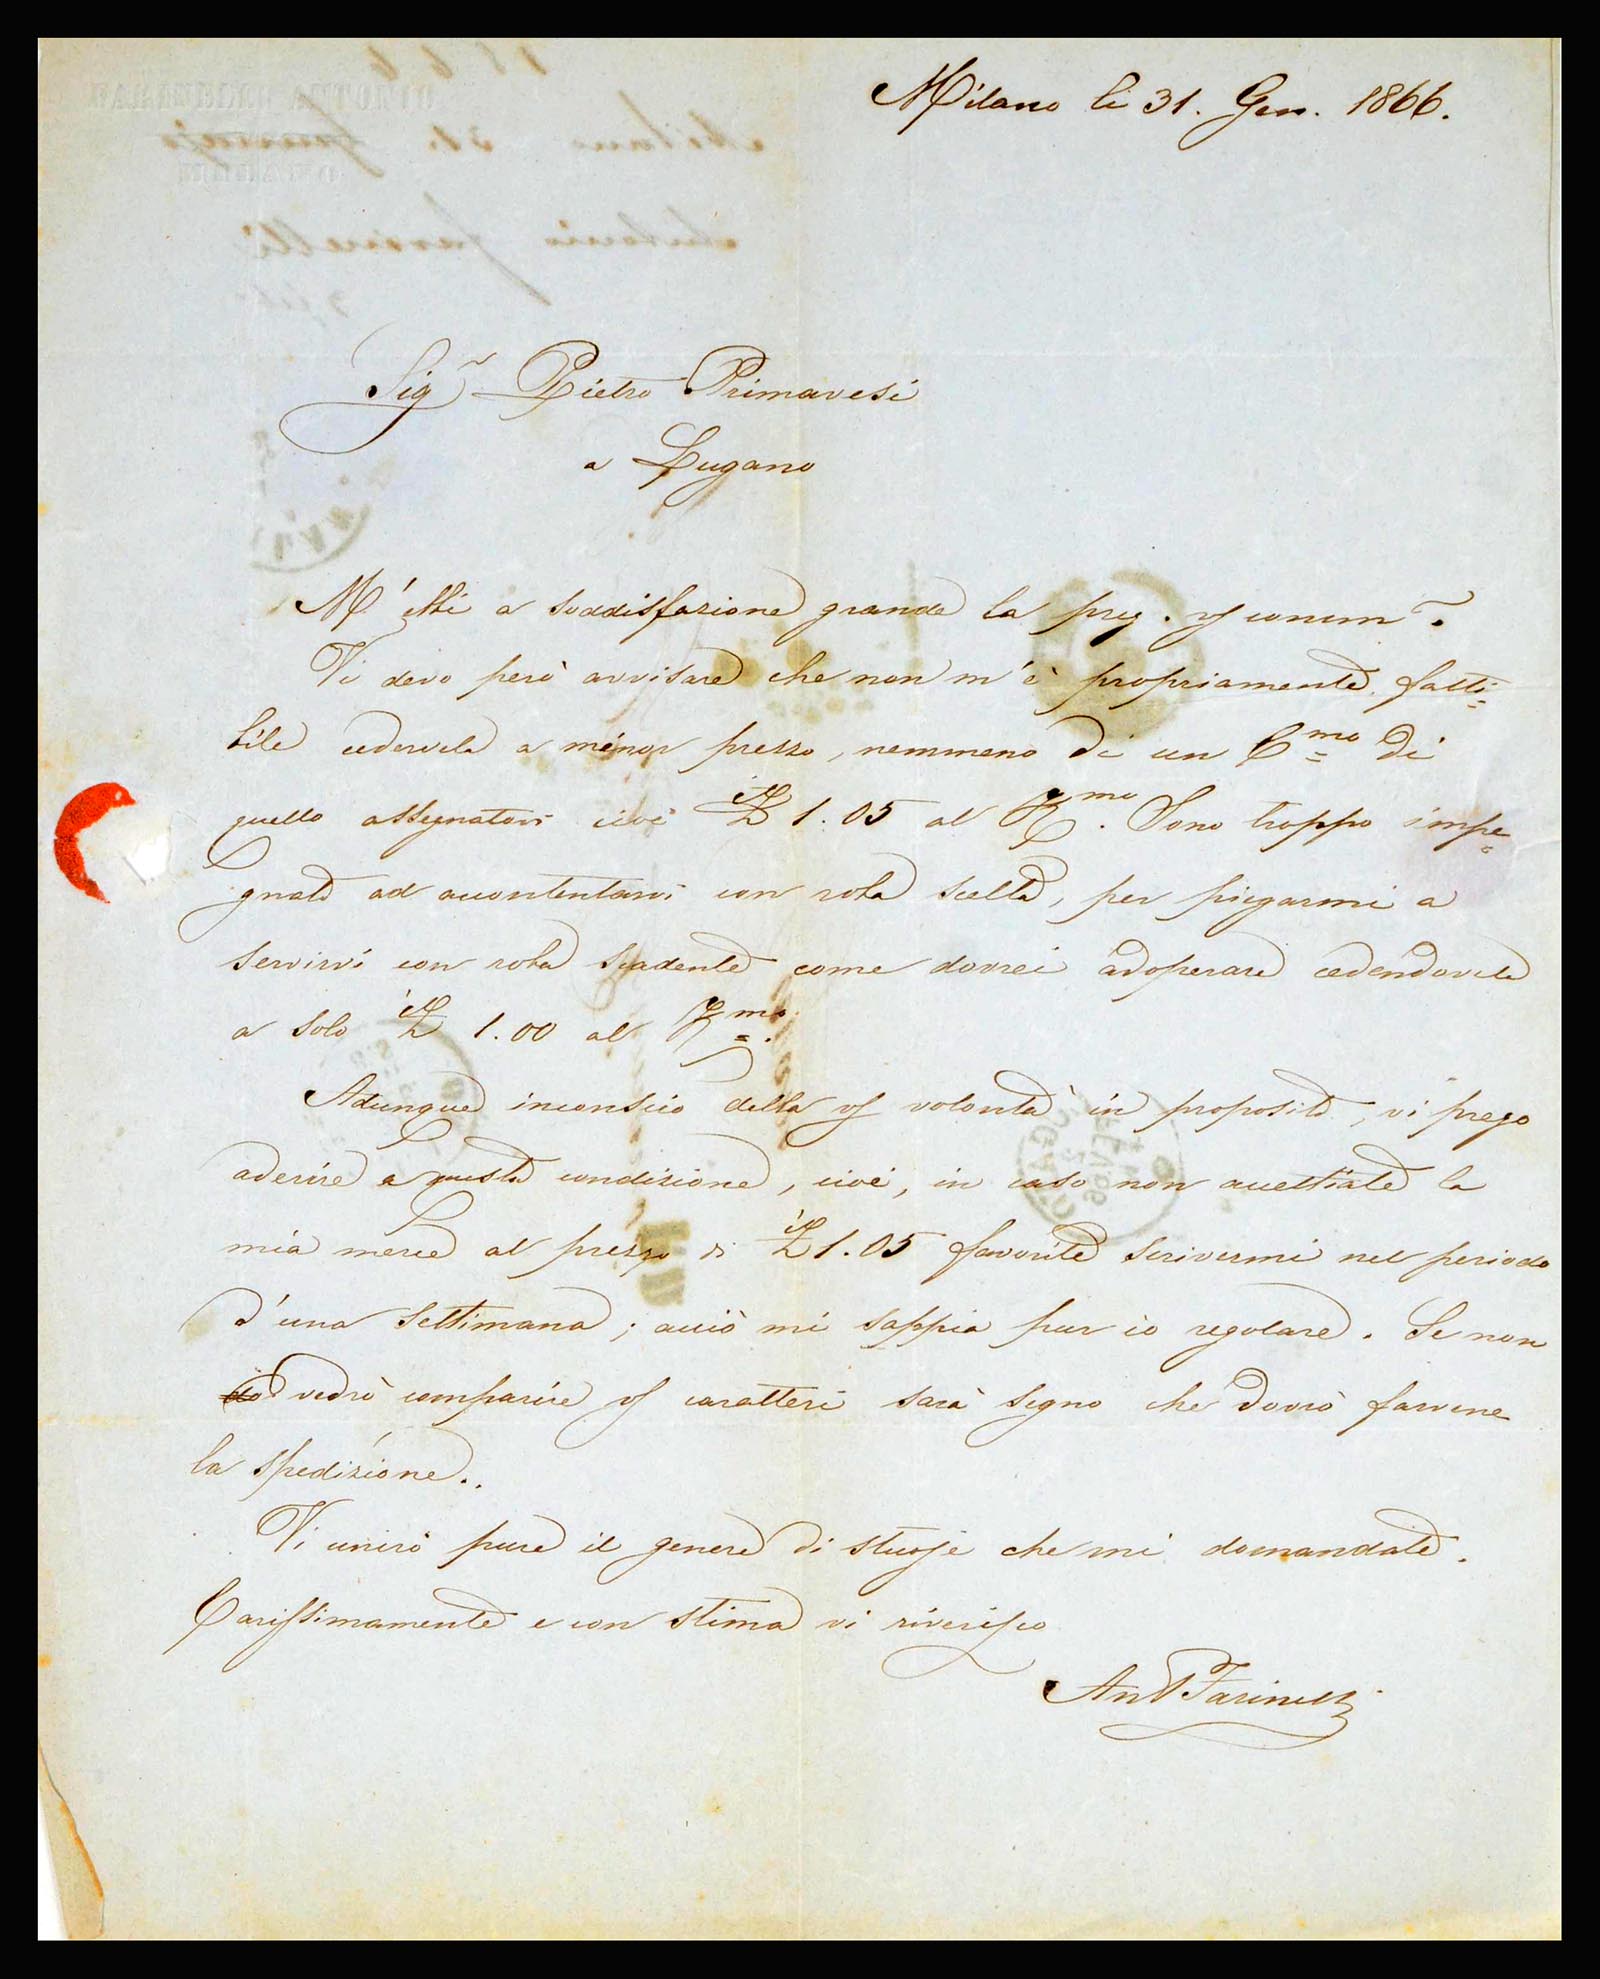 Milano li 31. Gen. 1866.
Sig.r Pietro Primavesi
a Lugano
M'ebbi a soddisfazione grande la preg. vs comm.e
Vi devo però avvisare che non m'è propriamente fatti=
bile cedervela a minor prezzo, nemmeno di un C.mo di
quello assegnatovi cioè 1.05 al K.mo. Sono troppo impe=
gnato ad accontentarvi con roba scelta, per piegarmi a
servirvi con roba scadente come dovrei adoperare cedendovela
a solo 1.00 al K.mo.
Adunque inconscio della vs volontà in proposito, vi prego
aderire a questa condizione, cioè, in caso non accettiate la
mia merce al prezzo di 1.05 favorite scrivermi nel periodo
d'una settimana; acciò mi sappia pur io regolare. Se non
vedrò comparire vs caratteri sarà segno che dovrò farvene
la spedizione.
Vi unirò pure il genere di stuoje che mi domandate.
Carissimamente e con stima vi riverisco
Ant Farinelli